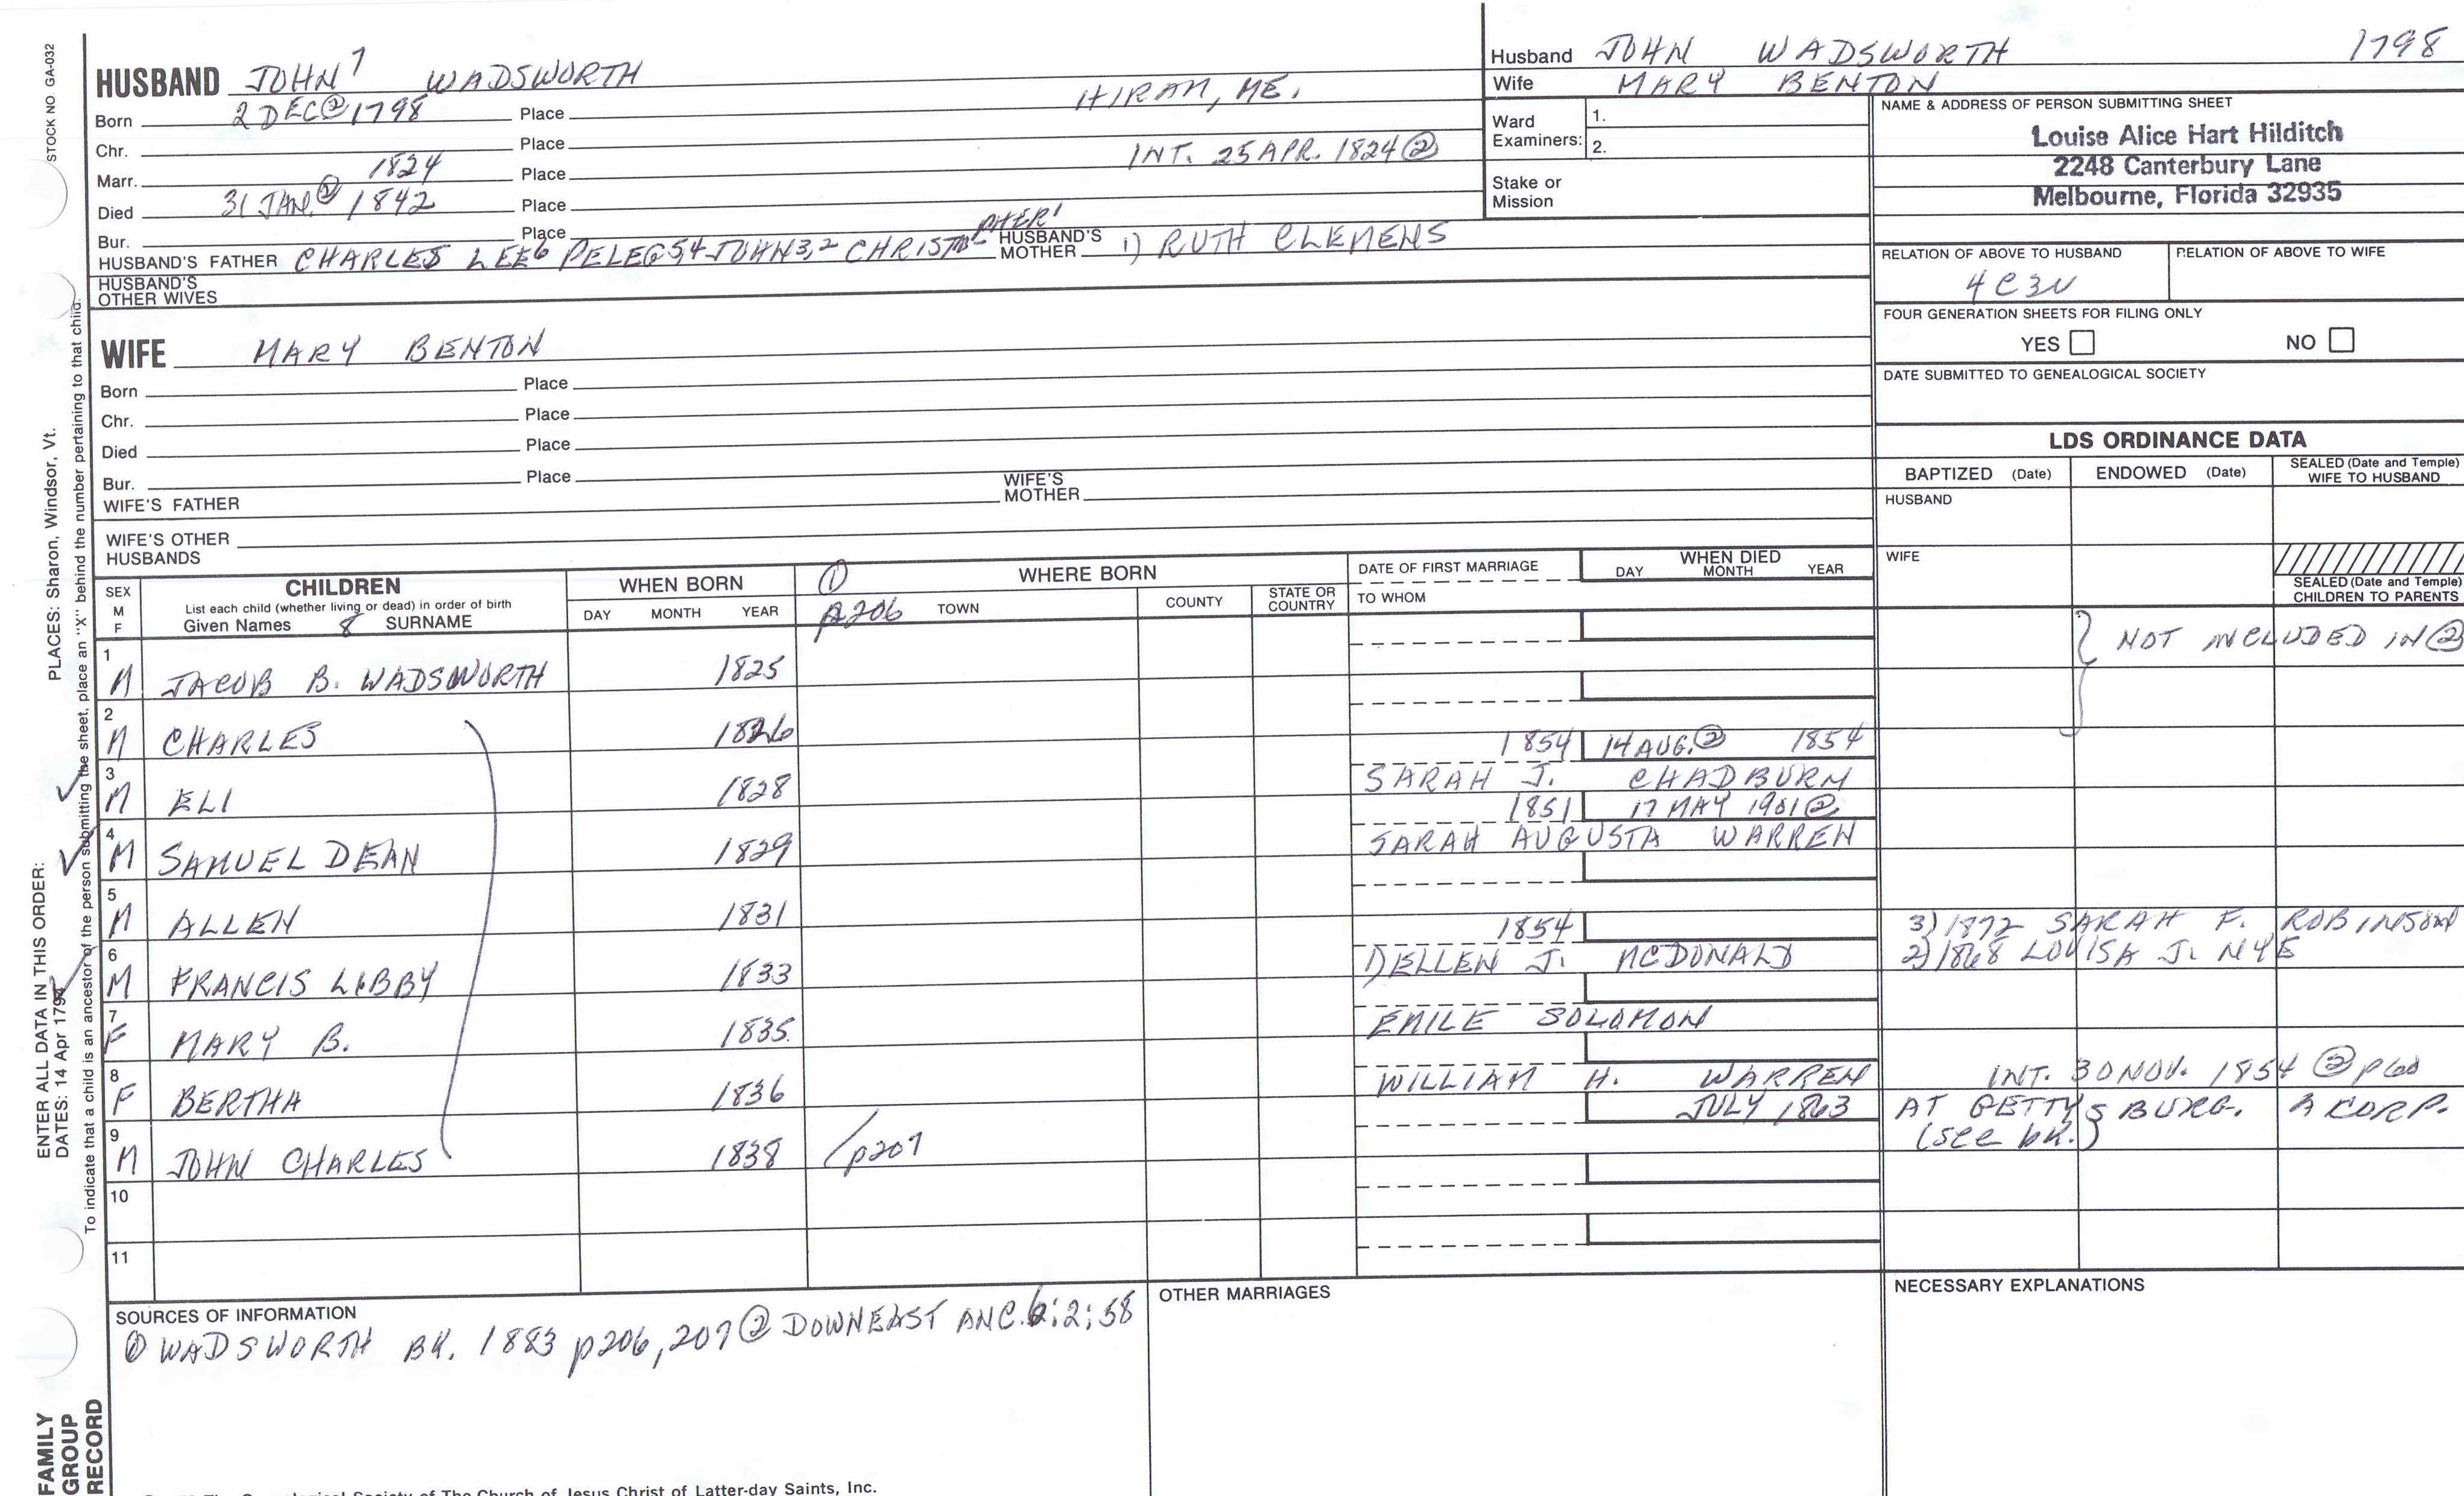 STOCK NO GA-032
PLACES: Sharon, Windsor, Vt.
ENTER ALL DATA IN THIS ORDER:
DATES: 14 Apr 1794
To indicate that a child is an ancestor of the person submitting the sheet, place an "X" behind the number pertaining to that child.
FAMILY GROUP RECORD
HUSBAND JOHN 7 WADSWORTH
Born 2 DEC ② 1798 Place HIRAM, ME.
Chr. Place
Marr. 1824 Place INT. 25 APR. 1824 ②
Died 31 JAN. ② 1842 Place
Bur. Place
HUSBAND'S FATHER CHARLES LEE 6 PELEG 5,4 JOHN 3,2 CHRISTO- PHER 1 HUSBAND'S MOTHER 1) RUTH CLEMENS
HUSBAND'S OTHER WIVES
WIFE MARY BENTON
Born Place
Chr. Place
Died Place
Bur. Place
WIFE'S FATHER WIFE'S MOTHER
WIFE'S OTHER HUSBANDS
Husband JOHN WADSWORTH 1798
Wife MARY BENTON
Ward Examiners: 1.
2.
Stake or Mission
NAME & ADDRESS OF PERSON SUBMITTING SHEET
Louise Alice Hart Hilditch
2248 Canterbury Lane
Melbourne, Florida 32935
RELATION OF ABOVE TO HUSBAND RELATION OF ABOVE TO WIFE
4C3
FOUR GENERATION SHEETS FOR FILING ONLY
YES NO
DATE SUBMITTED TO GENEALOGICAL SOCIETY
LDS ORDINANCE DATA
BAPTIZED (Date) ENDOWED (Date) SEALED (Date and Temple) WIFE TO HUSBAND
HUSBAND
WIFE
SEALED (Date and Temple) CHILDREN TO PARENTS
SEX M F CHILDREN List each child (whether living or dead) in order of birth Given Names 8 SURNAME
WHEN BORN DAY MONTH YEAR
① p206 WHERE BORN TOWN COUNTY STATE OR COUNTRY
DATE OF FIRST MARRIAGE TO WHOM
WHEN DIED DAY MONTH YEAR
1 M JACOB B. WADSWORTH 1825 NOT INCLUDED IN ②
2 M CHARLES 1826
3 M ELI 1828 1854 14 AUG. ② 1854
SARAH J. CHADBURN
4 M SAMUEL DEAN 1829 1851 17 MAY 1901 ②
SARAH AUGUSTA WARREN
5 M ALLEN 1831
6 M FRANCIS LIBBY 1833 1854 3) 1872 SARAH F. ROBINSON
1) ELLEN J. MCDONALD 2) 1868 LOUISA J. NYE
7 F MARY B. 1835
EMILE SOLOMON
8 F BERTHA 1836
WILLIAM H. WARREN INT. 30 NOV. 1854 ② p60
9 M JOHN CHARLES 1838 p207 JULY 1863 AT GETTYSBURG. A CORP.
(see bk.)
10
11
SOURCES OF INFORMATION
① WADSWORTH BK. 1883 p206, 207 ② DOWNEAST ANC. 6:2:58
OTHER MARRIAGES
NECESSARY EXPLANATIONS
The Genealogical Society of The Church of Jesus Christ of Latter-day Saints, Inc.